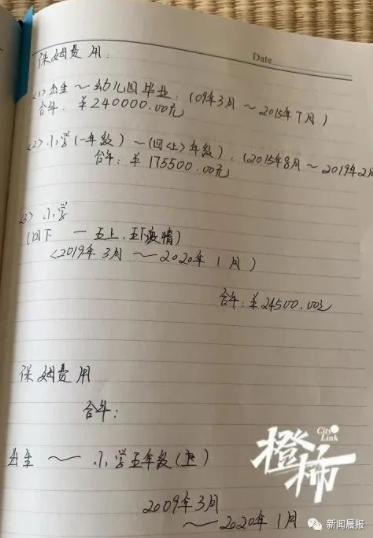 保姆费用:
Date
<1> 出生～幼儿园毕业. (09年3月～2015年7月)
合计: ¥240000.00元
<2> 小学(一年级)～(四<上>年级). (2015年8月～2019年2月
合计: ¥175500.00元
<3> 小学
(四下 — 五上. 五下疫情)
<2019年3月～2020年1月)
合计: ¥24500.00元
保姆费用
合计:
出生～小学五年级(上)
2009年3月
～2020年1月
City Link
橙柿
新闻晨报